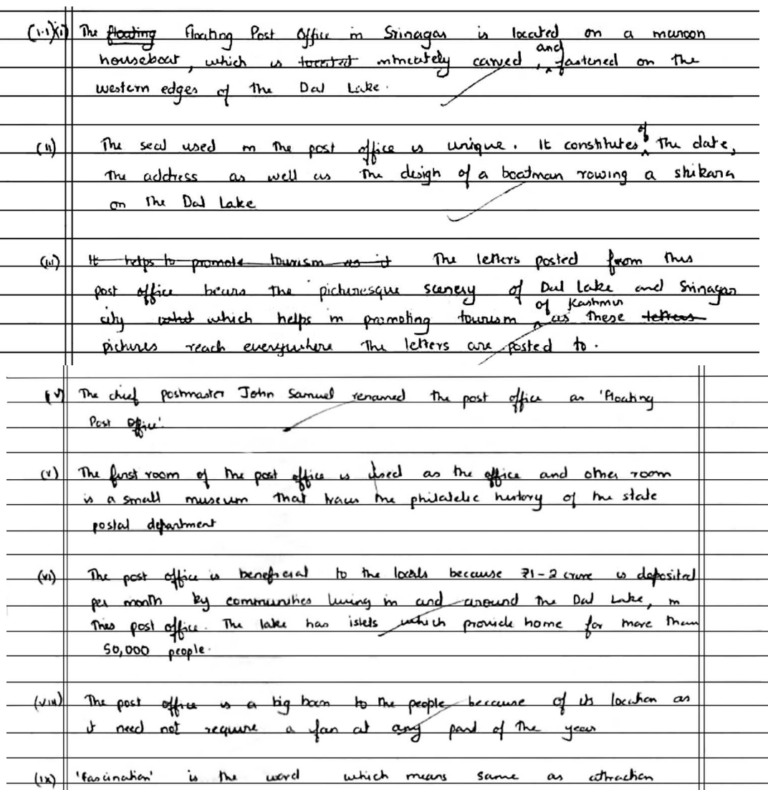 (1.1)(i) The floating Floating Post Office in Srinagar is located on a maroon
houseboat, which is located intricately carved, and fastened on the
western edges of the Dal Lake.
(ii) The seal used in the post office is unique. It constitutes of the date,
the address as well as the design of a boatman rowing a shikara
on the Dal Lake
(iii) It helps to promote tourism as it The letters posted from this
post office bears the picturesque scenery of Dal Lake and Srinagar
city which helps in promoting tourism of Kashmir as these letters
pictures reach everywhere the letters are posted to.
The chief postmaster John Samuel renamed the post office as 'Floating
Post Office'.
(v) The first room of the post office is used as the office and other room
is a small museum that the philatelic history of the state
postal department
(vi) The post office is beneficial to the locals because ₹1-2 crore is deposited
per month by communities living in and around the Dal Lake, in
this post office. The lake has islets which provide home for more than
50,000 people.
(viii) The post office is a big boon to the people because of its location as
it need not require a fan at any part of the year
(ix) 'Fascination' is the word which means same as attraction